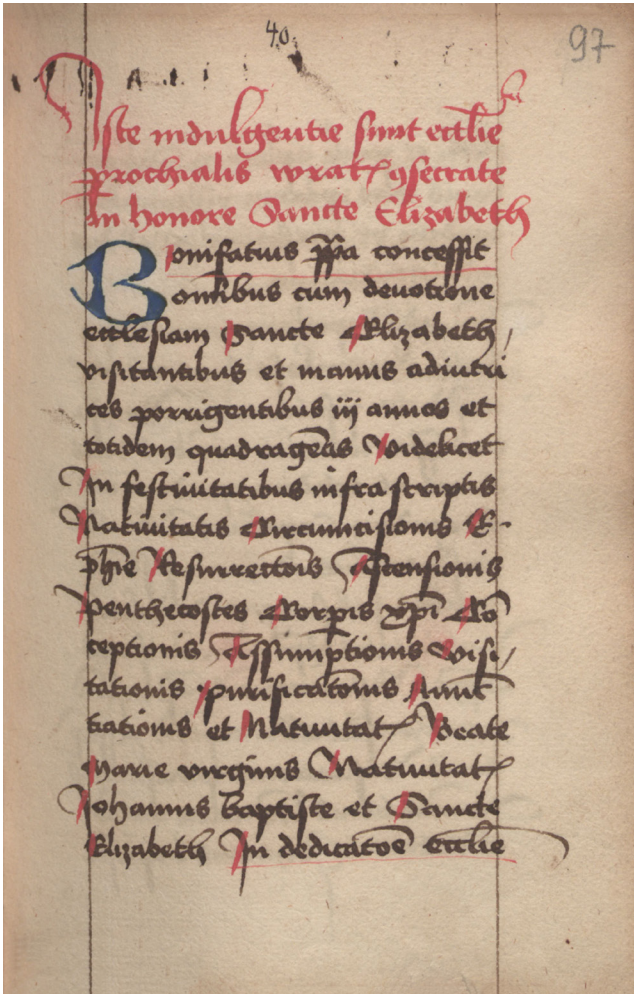 40
97
Iste indulgentie sunt eccl̄ie
prochialis wratꝭ ꝯsecrate
In honore Sancte Elizabeth
Bonifatius p̄pa concessit
omībus cum deuotione
ecclesiam Sancte Elizabeth
visitantibus et manus adiutri
ces porrigentibus iij annos et
totidem quadragēas Videlicet
In festiuitatibus infra scriptis
Natiuitatis Circumcisionis E-
ph̄ie Resurrectōis Ascensionis
Penthecostes Corꝑis xp̄i Cō
ceptionis Assumptionis visi
tationis purificatōnis Annūc
tiationis et Natiuitatꝭ Beate
Marie virginis Natiuitatꝭ
Johannis baptiste et Sancte
Elizabeth In dedicatōe eccl̄ie